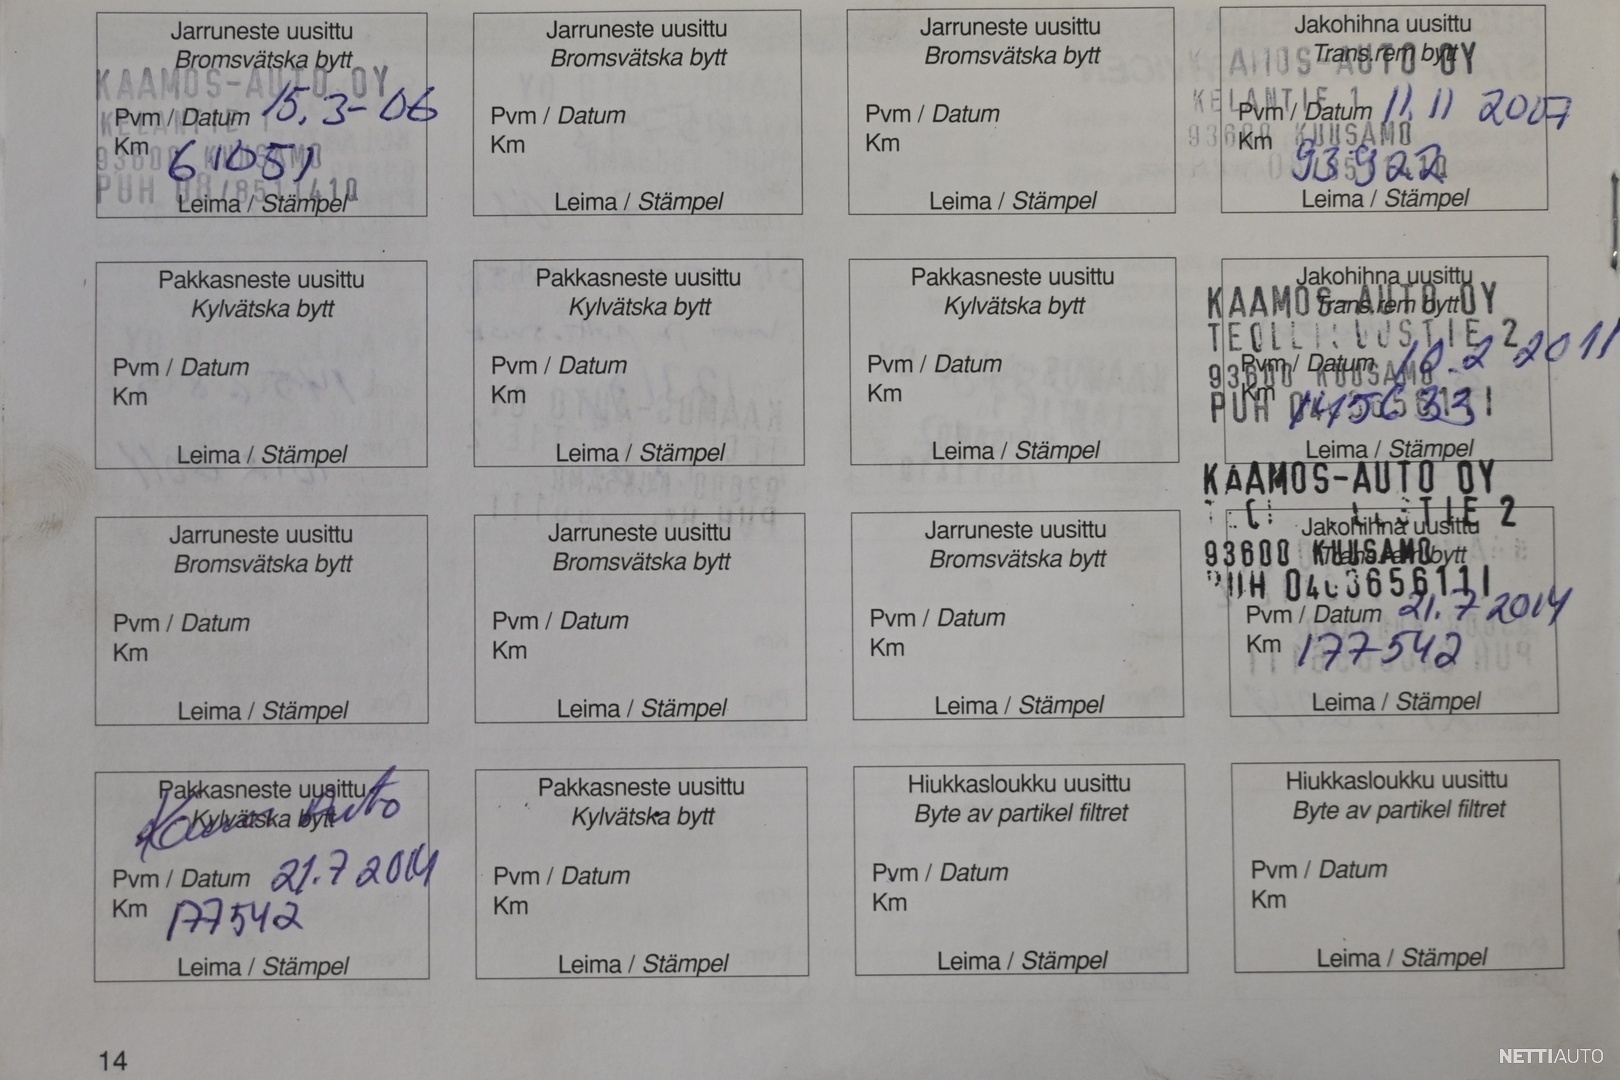 Jarruneste uusittu
Bromsvätska bytt
KAAMOS-AUTO OY
Pvm / Datum 15.3-06
KELANTIE 1
Km 61051
93600 KUUSAMO
PUH 08/8511410
Leima / Stämpel
Jarruneste uusittu
Bromsvätska bytt
Pvm / Datum
Km
Leima / Stämpel
Jarruneste uusittu
Bromsvätska bytt
Pvm / Datum
Km
Leima / Stämpel
Jakohihna uusittu
Trans.rem bytt
KAAMOS-AUTO OY
KELANTIE 1
Pvm / Datum 11.11 2007
93600 KUUSAMO
Km 93922
Leima / Stämpel
Pakkasneste uusittu
Kylvätska bytt
Pvm / Datum
Km
Leima / Stämpel
Pakkasneste uusittu
Kylvätska bytt
Pvm / Datum
Km
Leima / Stämpel
Pakkasneste uusittu
Kylvätska bytt
Pvm / Datum
Km
Leima / Stämpel
Jakohihna uusittu
Trans.rem bytt
KAAMOS-AUTO OY
2
Pvm / Datum 10.2 2011
93600 KUUSAMO
Km 145633
PUH
Leima / Stämpel
Jarruneste uusittu
Bromsvätska bytt
Pvm / Datum
Km
Leima / Stämpel
Jarruneste uusittu
Bromsvätska bytt
Pvm / Datum
Km
Leima / Stämpel
Jarruneste uusittu
Bromsvätska bytt
Pvm / Datum
Km
Leima / Stämpel
KAAMOS-AUTO OY
2
Jakohihna uusittu
Trans.rem bytt
93600 KUUSAMO
PUH 0403656111
Pvm / Datum 21.7 2014
Km 177542
Leima / Stämpel
Pakkasneste uusittu
Kylvätska bytt
Auto
Pvm / Datum 21.7 2014
Km 177542
Leima / Stämpel
Pakkasneste uusittu
Kylvätska bytt
Pvm / Datum
Km
Leima / Stämpel
Hiukkasloukku uusittu
Byte av partikel filtret
Pvm / Datum
Km
Leima / Stämpel
Hiukkasloukku uusittu
Byte av partikel filtret
Pvm / Datum
Km
Leima / Stämpel
14
NETTIAUTO